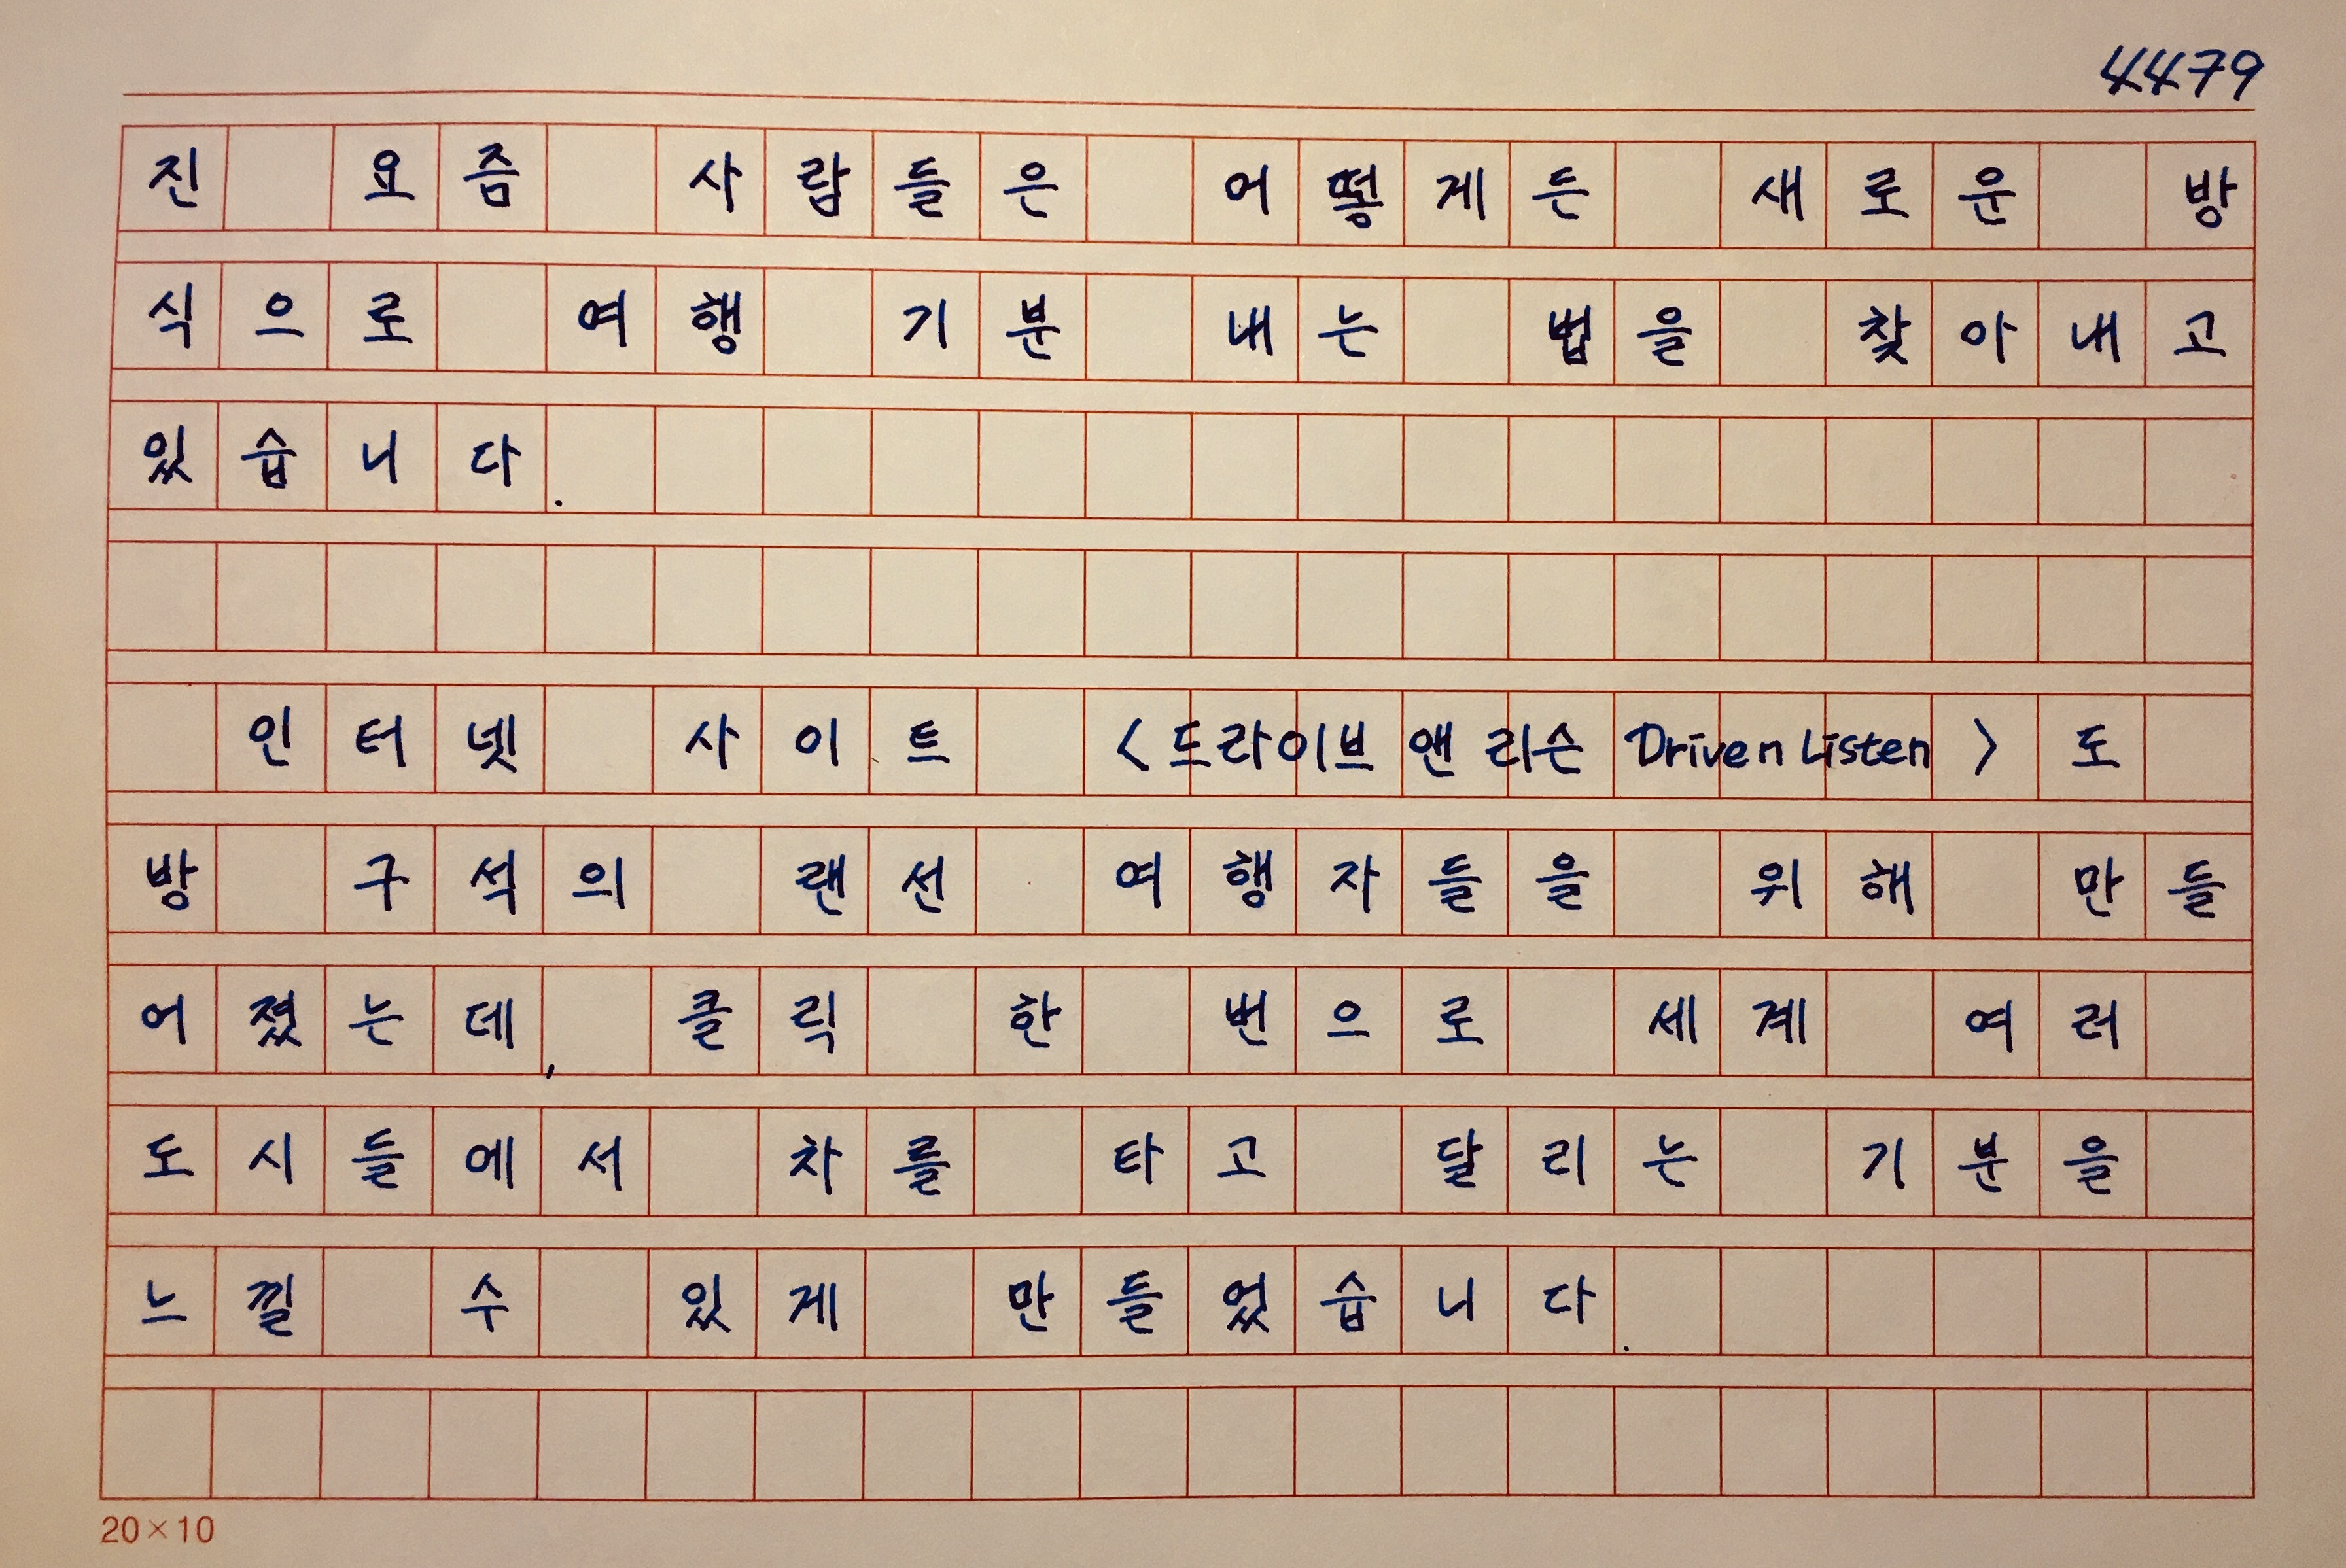 4479
진 요즘 사람들은 어떻게든 새로운 방
식으로 여행 기분 내는 법을 찾아내고
있습니다.
인터넷 사이트 <드라이브 앤 리슨 Driven Listen>도
방 구석의 랜선 여행자들을 위해 만들
어졌는데, 클릭 한 번으로 세계 여러
도시들에서 차를 타고 달리는 기분을
느낄 수 있게 만들었습니다.
20×10